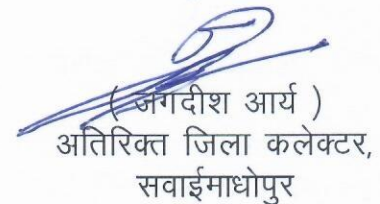 ( जगदीश आर्य )
अतिरिक्त जिला कलेक्टर,
सवाईमाधोपुर